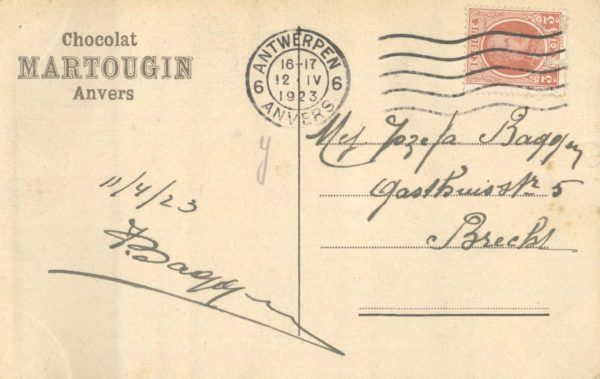 Chocolat
MARTOUGIN
Anvers
ANTWERPEN
6 16-17 6
12 IV
1923
ANVERS
Mej Jozefa Baggen
Gasthuisstr 5
Brecht
11/4/23
Baggen